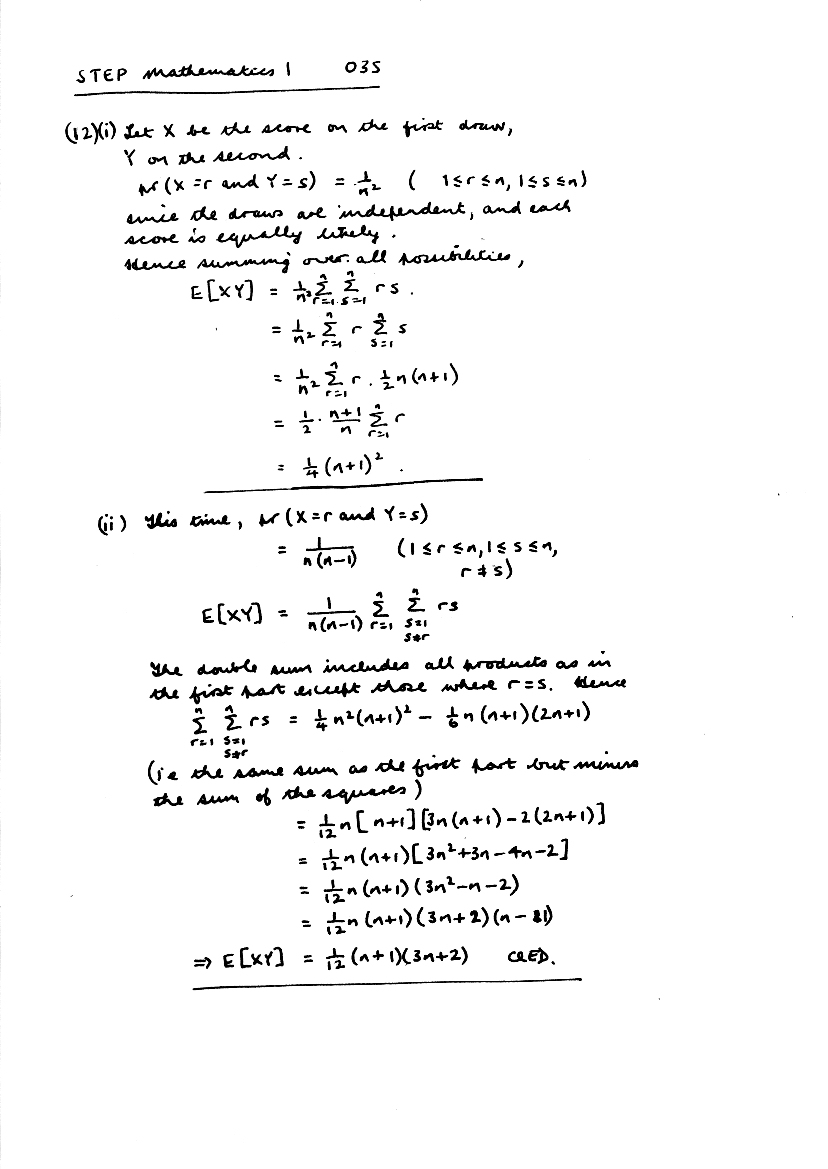 STEP Mathematics 1 03S
(12)(i) Let X be the score on the first draw,
Y on the second.
pr (X = r and Y = s) = 1/n² ( 1 ≤ r ≤ n, 1 ≤ s ≤ n)
since the draws are independent, and each
score is equally likely.
Hence summing over all possibilities,
E[XY] = 1/n² Σ_{r=1}^{n} Σ_{s=1}^{n} rs.
= 1/n² Σ_{r=1}^{n} r Σ_{s=1}^{n} s
= 1/n² Σ_{r=1}^{n} r . ½n(n+1)
= 1/2 . (n+1)/n Σ_{r=1}^{n} r
= ¼(n+1)² .
(ii) This time, pr (X = r and Y = s)
= 1/(n(n-1)) (1 ≤ r ≤ n, 1 ≤ s ≤ n,
r ≠ s)
E[XY] = 1/(n(n-1)) Σ_{r=1}^{n} Σ_{s=1, s≠r}^{n} rs
The double sum includes all products as in
the first part except those where r = s. Hence
Σ_{r=1}^{n} Σ_{s=1, s≠r}^{n} rs = ¼n²(n+1)² - 1/6 n(n+1)(2n+1)
(ie the same sum as the first part but minus
the sum of the squares)
= 1/12 n[n+1][3n(n+1)-2(2n+1)]
= 1/12 n(n+1)[3n²+3n-4n-2]
= 1/12 n(n+1)(3n²-n-2)
= 1/12 n(n+1)(3n+2)(n-1)
⇒ E[XY] = 1/12 (n+1)(3n+2) QED.